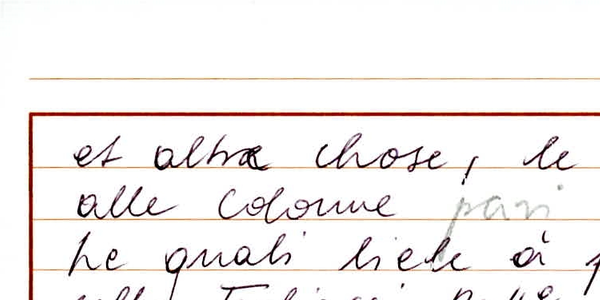 et altre chose, le
alle colonne pari
Le quali liele à